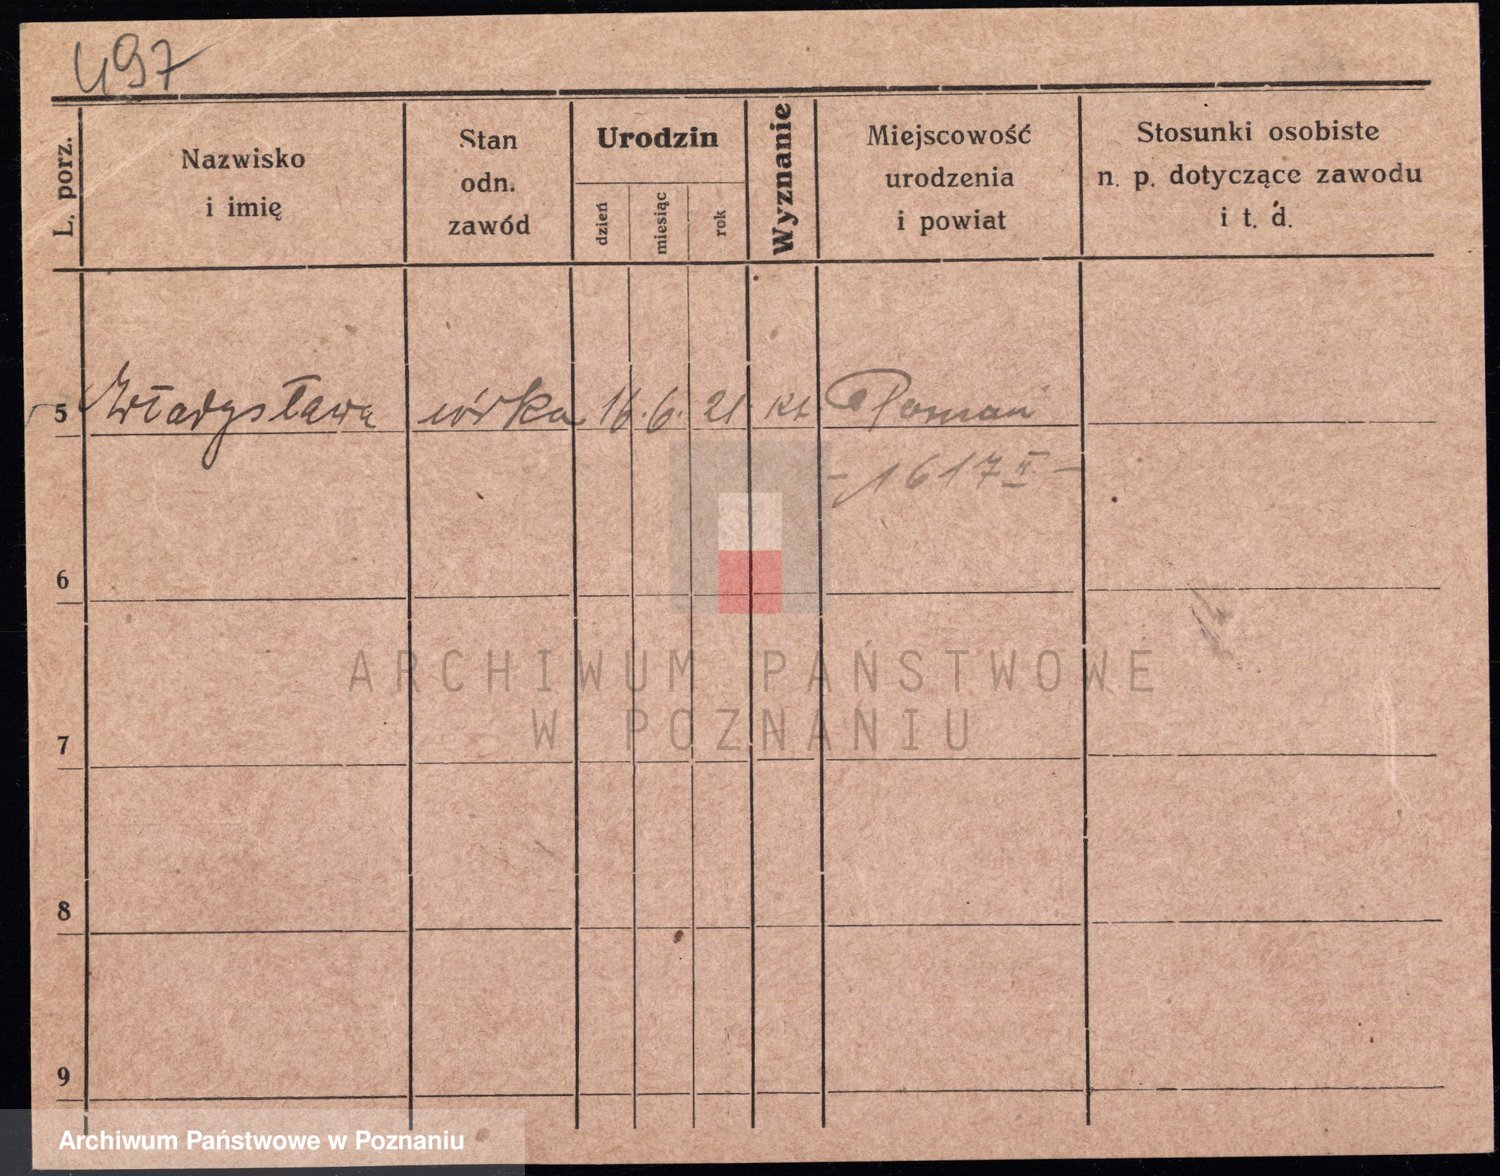 497
L. porz.
Nazwisko
i imię
Stan
odn.
zawód
Urodzin
dzień
miesiąc
rok
Wyznanie
Miejscowość
urodzenia
i powiat
Stosunki osobiste
n. p. dotyczące zawodu
i t. d.
5 Władysława córka 16. 6. 21 kt. Poznań
- 1617 II -
6
ARCHIWUM PAŃSTWOWE
W POZNANIU
7
8
9
Archiwum Państwowe w Poznaniu